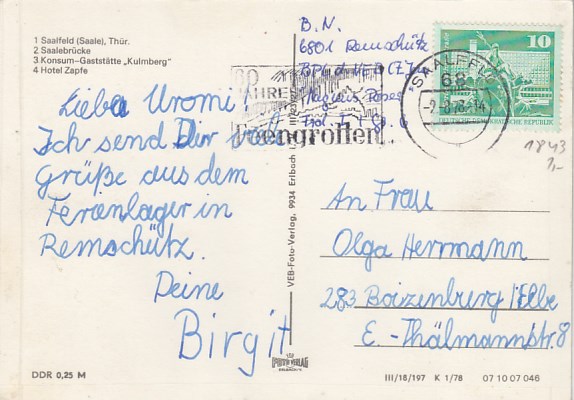 1 Saalfeld (Saale), Thür.
2 Saalebrücke
3 Konsum-Gaststätte „Kulmberg"
4 Hotel Zapfe
Liebe Uromi!
Ich send Dir viele
Grüße aus dem
Ferienlager in
Remschütz.
Deine
Birgit
DDR 0,25 M
B. N.
6801 Remschütz
JAHRE
Feengrotten
SAALFELD
68
10
DEUTSCHE DEMOKRATISCHE REPUBLIK
1843
1,-
An Frau
Olga Herrmann
283 Boizenburg/Elbe
E.-Thälmannstr. 8
VEB-Foto-Verlag, 9934 Erlbach
III/18/197 K 1/78 07 10 07 046